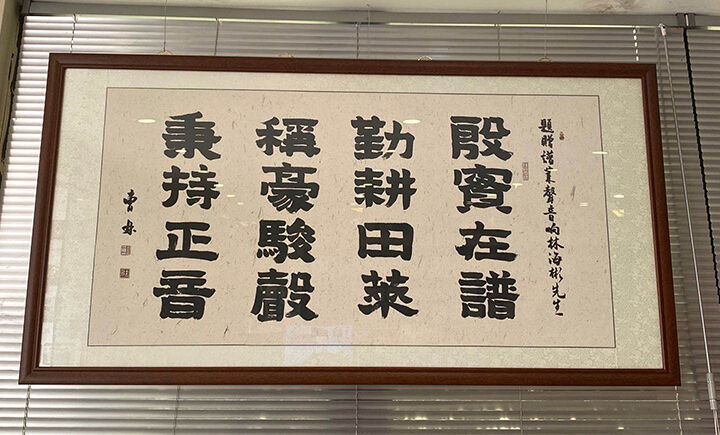 題贈譜萊聲音响林海彬先生
殷賓在譜
勤耕田萊
稱豪駿聲
秉持正音